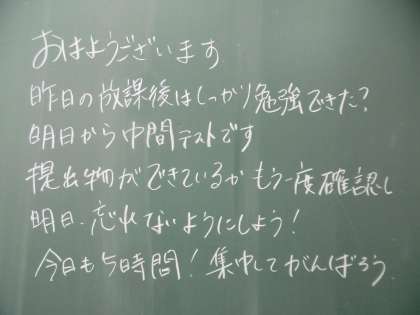 おはようございます
昨日の放課後はしっかり勉強できた？
明日から中間テストです
提出物ができているかもう一度確認し
明日、忘れないようにしよう！
今日も5時間！集中してがんばろう